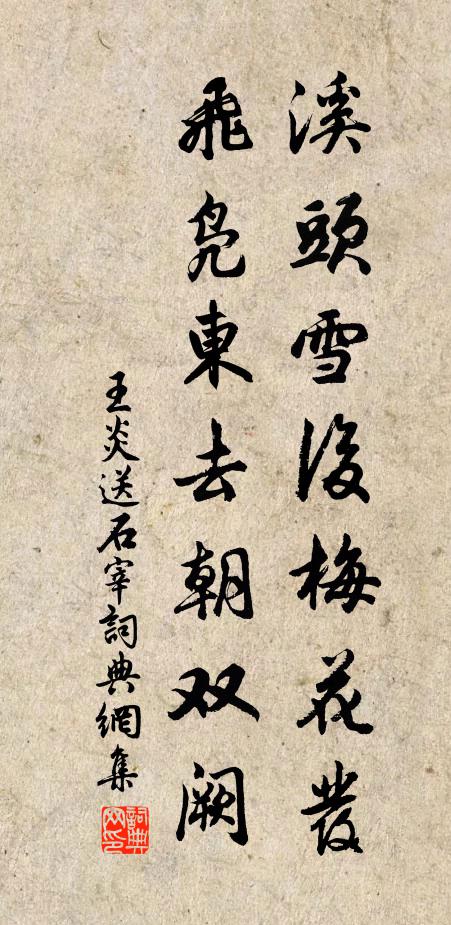 溪頭雪後梅花發
飛鳧東去朝双阙
王炎送石宰詞典網集
詞典網印